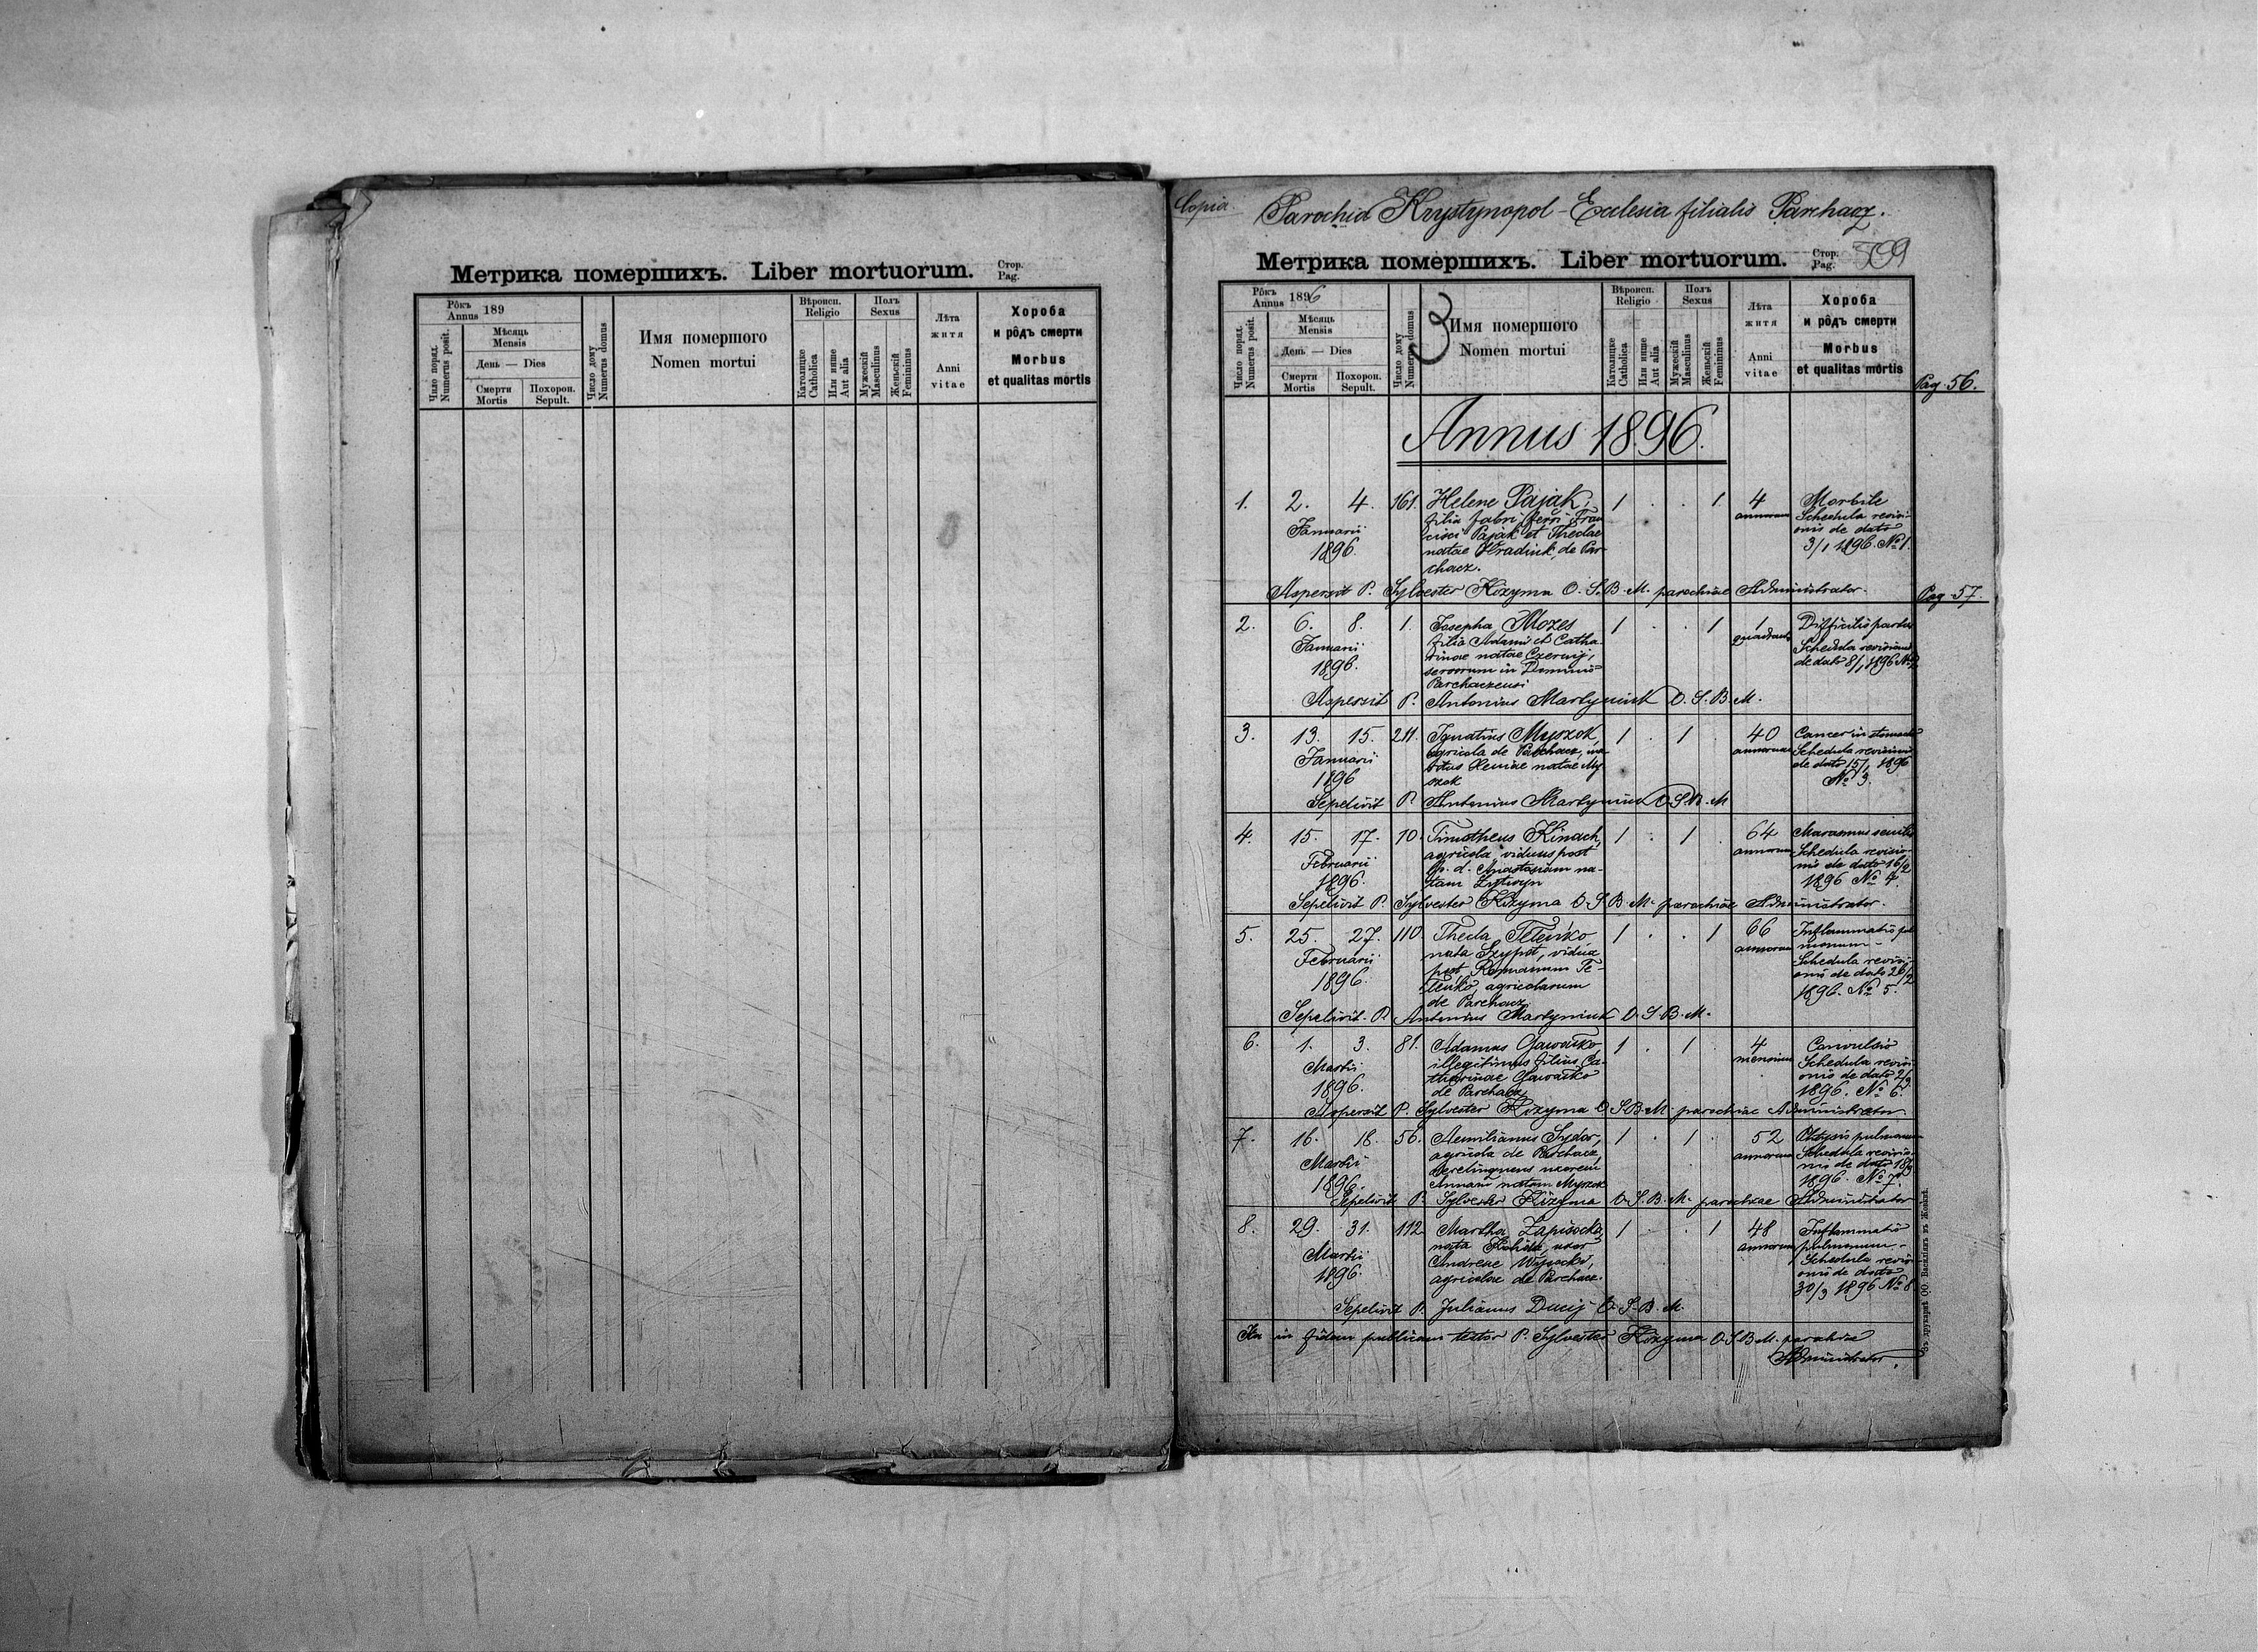 Метрика помершихъ. Liber mortuorum.
Стор.
Pag.
Рôкъ
Annus 189
Число поряд.
Numerus posit.
Мѣсяць
Mensis
День — Dies
Смерти
Mortis
Похорон.
Sepult.
Число дому
Numerus domus
Имя помершого
Nomen mortui
Вѣроисп.
Religio
Католицке
Catholica
Или инше
Aut alia
Полъ
Sexus
Мужескій
Masculinus
Женьскій
Femininus
Лѣта
житя
Anni
vitae
Хороба
и рôдъ смерти
Morbus
et qualitas mortis
Copia.
Parochia Krystynopol - Ecclesia filialis Parchacz.
Метрика помершихъ. Liber mortuorum.
Стор.
Pag. 509
Рôкъ
Annus 1896
Число поряд.
Numerus posit.
Мѣсяць
Mensis
День — Dies
Смерти
Mortis
Похорон.
Sepult.
Число дому
Numerus domus
3
Имя помершого
Nomen mortui
Вѣроисп.
Religio
Католицке
Catholica
Или инше
Aut alia
Полъ
Sexus
Мужескій
Masculinus
Женьскій
Femininus
Лѣта
житя
Anni
vitae
Хороба
и рôдъ смерти
Morbus
et qualitas mortis
Pag. 56.
Annus 1896.
1. 2. 4. 161. Helene Pająk, 1 . . 1 4 Morbile
filia fabri ferri Fran annorum Schedula revisi-
Januarii cisci Pająk et Theclae onis de dato
1896. natae Hradiuk de Par 3/1 1896. No 1.
chacz.
Aspersit P. Sylvester Kozyma O. S. B. M. parochiae Administrator.
Pag. 57.
2. 6. 8. 1. Josepha Mozes 1 . . 1 1 Difficilis partus
Januarii filia Adami et Catha- quadrans Schedula revisionis
1896. rinae natae Czerwij, de dato 8/1 1896 No 2
servorum in Dominio
Parchaczensi
Aspersit P. Antonius Martyniuk O. S. B. M.
3. 13. 15. 211. Ignatius Myszok, 1 . 1 . 40 Cancer in stomacho
Januarii agricola de Parchacz, ma annorum Schedula revisionis
1896 ritus Xeniae natae My de dato 15/1 1896
szok No 3.
Sepelivit P. Antonius Martyniuk O. S. B. M
4. 15. 17. 10. Timotheus Kinach, 1 . 1 . 64 Marasmus senilis
Februarii agricola, viduus post annorum Schedula revisio-
1896. p. d. Anastasiam na- nis de dato 16/2
tam Lytwyn 1896 No 4.
Sepelivit P. Sylvester Kozyma O. S. B. M. parochiae Administrator.
5. 25. 27. 110 Thecla Teteńko 1 . . 1 66 Inflammatio pul
Februarii nata Szypot, vidua annorum monum -
1896. post Romanum Te- Schedula revisi-
teńko, agricolarum onis de dato 26/2
de Parchacz. 1896. No 5.
Sepelivit P. Antonius Martyniuk O. S. B. M.
6. 1. 3. 81. Adamus Gawońko 1 . 1 . 4 Convulsio
Martii illegitimus filius Ca- mensium Schedula revisi-
1896. tharinae Gawońko onis de dato 2/3
de Parchacz 1896. No 6.
Aspersit P. Sylvester Kozyma O S. B. M. parochiae Administrator.
7. 16. 18. 56. Aemilianus Sydor, 1 . 1 . 52 Phtysis pulmonum
Martii agricola de Parchacz, annorum Schedula revisio-
1896. derelinquens uxorem nis de dato 18/3
Annam natam Myszok 1896. No 7.
Sepelivit P. Sylvester Kozyma O. S. B. M. parochiae Administrator
8. 29. 31. 112 Martha Zapisocka, 1 . . 1 48 Inflammatio
Martii nata uxor annorum pulmonum -
1896. Andreae Schedula revisi-
agricolae de Parchacz. onis de dato
30/3 1896 No 8
Sepelivit P. Julianus Ducij O. S. B. M.
Ita in fidem publicam testor P. Sylvester Kozyma O. S. B. M. parochiae
Administrator.
Зъ друкарнѣ ОО. Василіянъ въ Жовквѣ.